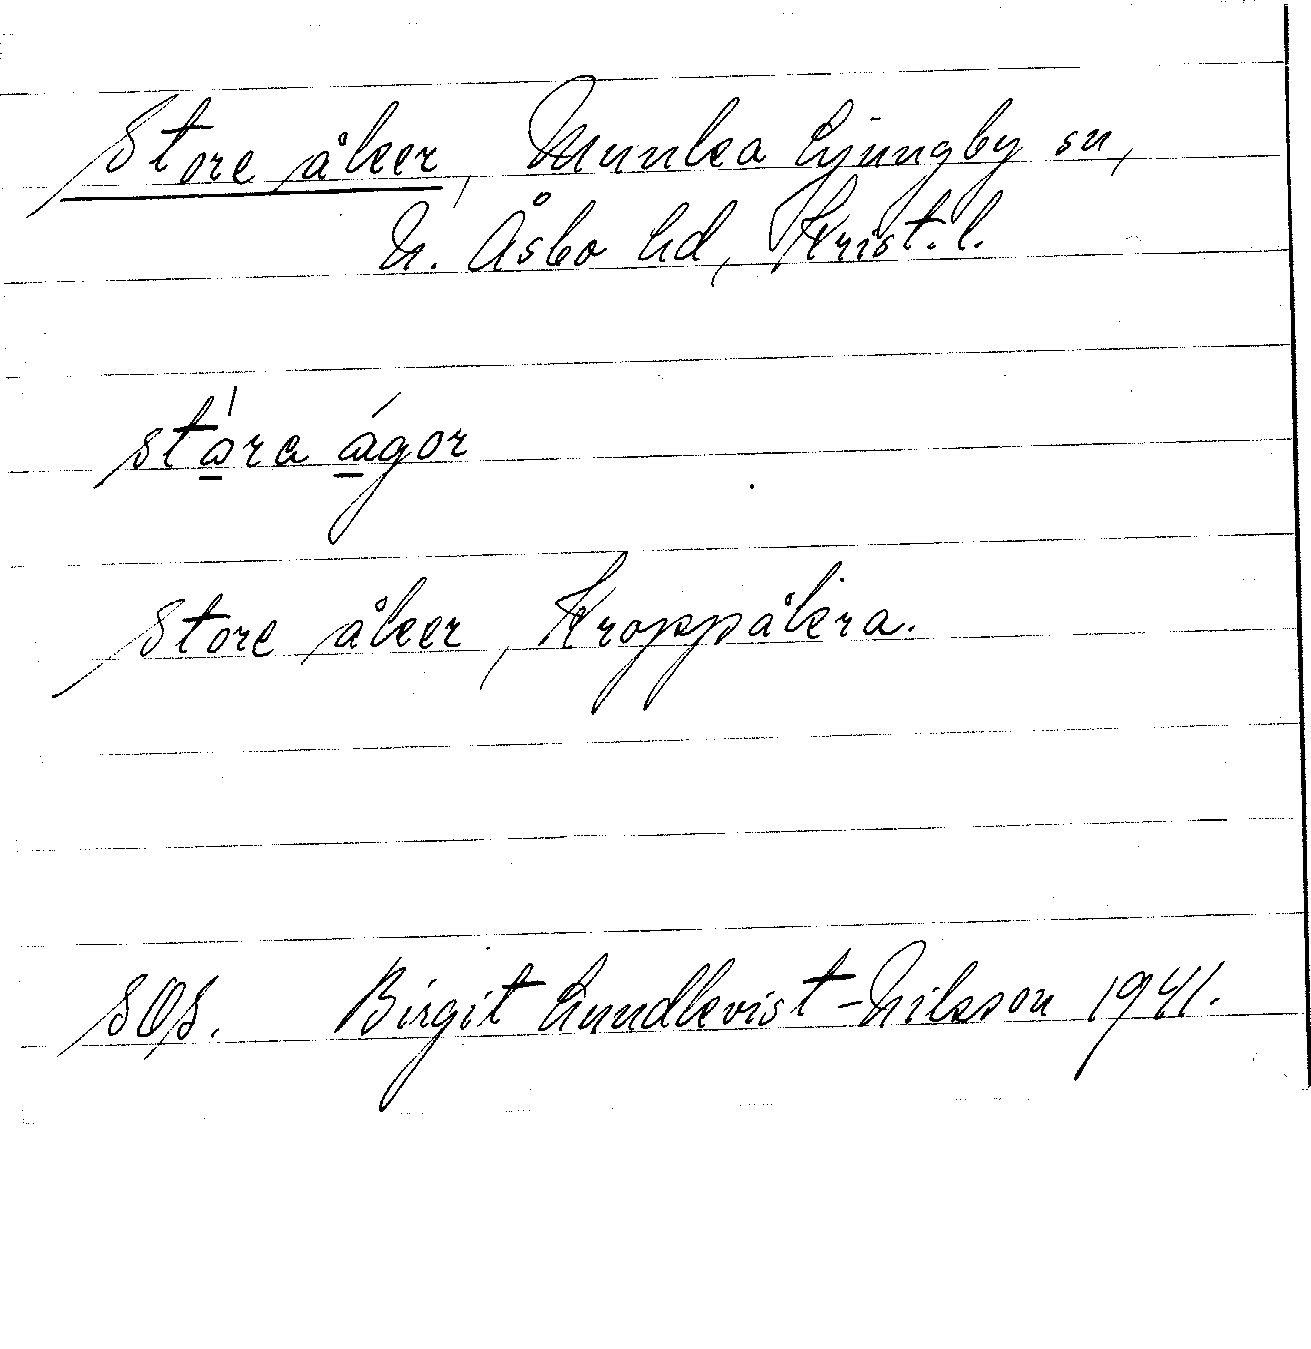 Store åker, Munka Ljungby sn,
N. Åsbo hd, Krist. l.
stárа ágor
Store åker, Kroppåkra.
SOS. Birgit Lundkvist-Nilsson 1941.